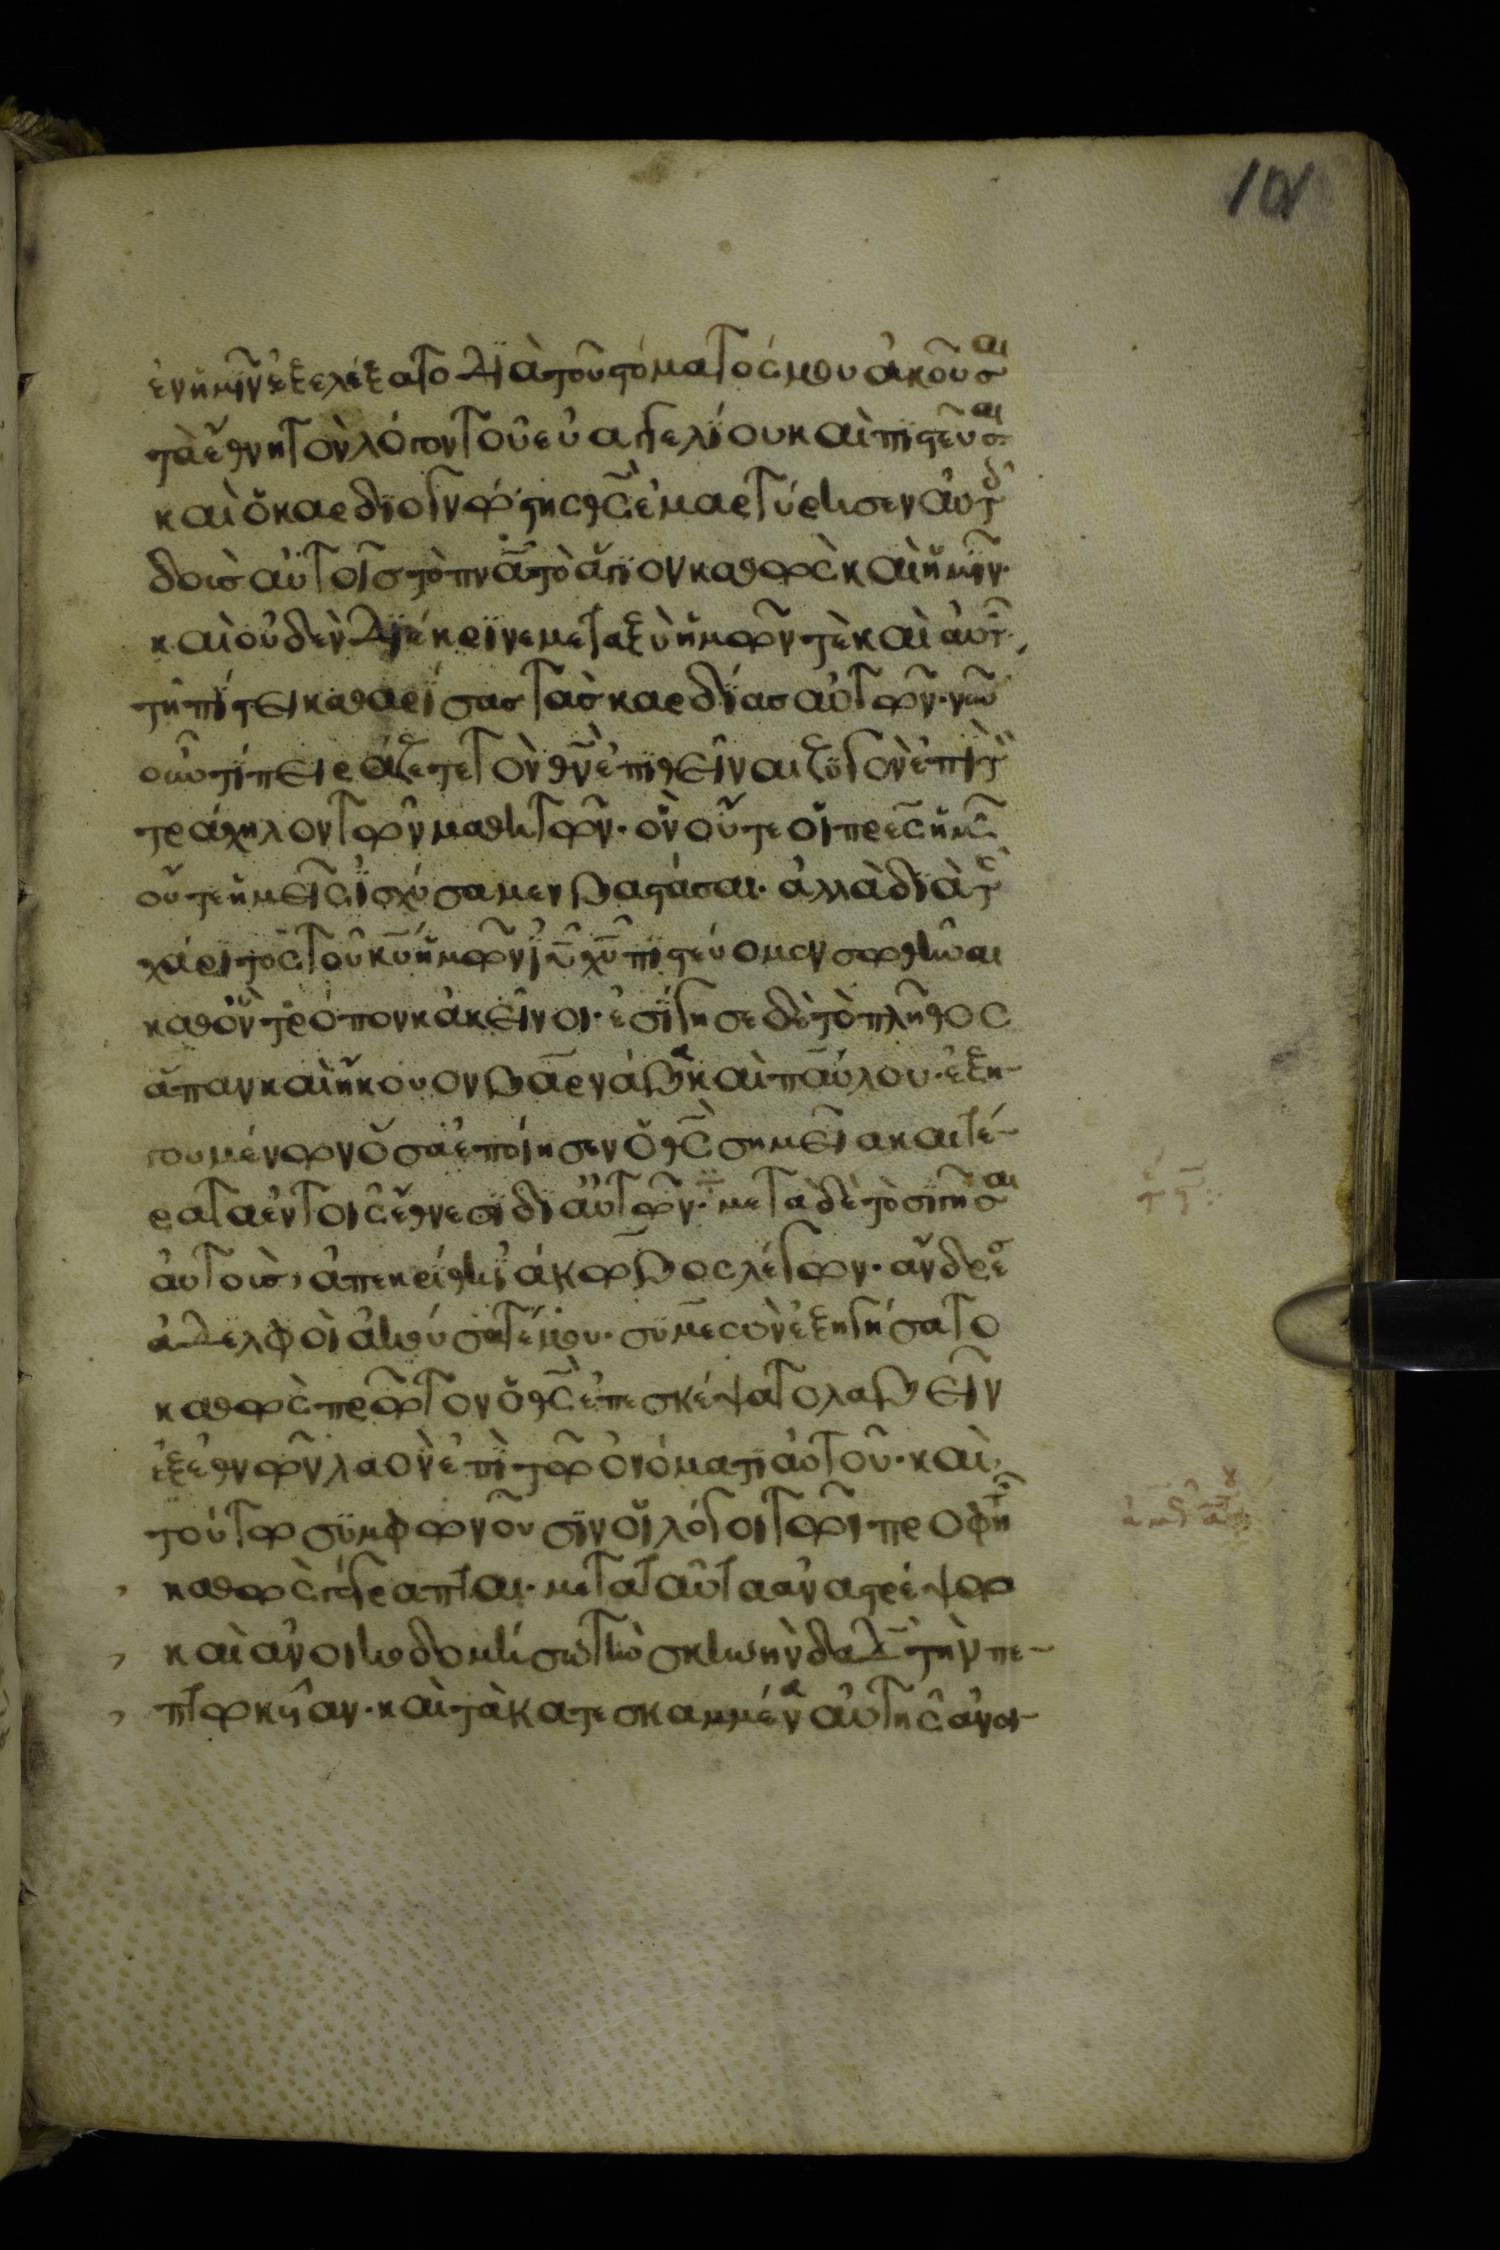 101
ἐν ἡμῖν ἐξελέξατο διὰ τοῦ στόματός μου ἀκοῦσαι
τὰ ἔθνη τὸν λόγον τοῦ εὐαγγελίου καὶ πιστεῦσαι
καὶ ὁ καρδιογνώστης θς ἐμαρτύρησεν αὐτ
δοὺς αὐτοῖς τὸ πνα τὸ ἅγιον καθὼς καὶ ἡμῖν·
καὶ οὐδὲν διέκρινε μεταξὺ ἡμῶν τὲ καὶ αὐτ,
τῇ πίστει καθαρίσας τὰς καρδίας αὐτῶν· νῦν
οὖν τί πειράζετε τὸν θν ἐπιθεῖναι ζυγὸν ἐπὶ τὸν
τράχηλον τῶν μαθητῶν· ὃν οὔτε οἱ πρες ἡμ
οὔτε ἡμεῖς ἰσχύσαμεν βαστάσαι· ἀλλὰ διὰ τῆς
χάριτος τοῦ κυ ἡμῶν ιυ χυ πιστεύομεν σωθῆναι
καθ ὃν τρόπον κἀκεῖνοι· ἐσίγησε δὲ τὸ πλῆθος
ἅπαν καὶ ἤκουον βαρνάβα καὶ παύλου· ἐξη-
γουμένων ὅσα ἐποίησεν ὁ θς σημεῖα καὶ τέ-
ρατα ἐν τοῖς ἔθνεσι δι αὐτῶν· μετὰ δὲ τὸ σιγῆσαι
αὐτοὺς, ἀπεκρίθη ἰάκωβος λέγων· ἄνδρες
ἀδελφοὶ ἀκούσατέ μου· συμεὼν ἐξηγήσατο
καθὼς πρῶτον ὁ θς ἐπεσκέψατο λαβεῖν
ἐξ ἐθνῶν λαὸν ἐπὶ τῶ ὀνόματι αὐτοῦ· καὶ
τούτω συμφωνοῦσιν οἱ λόγοι τῶν προφη
καθὼς γέγραπται· μετὰ ταῦτα ἀναστρέψω
καὶ ἀνοικοδομήσω τὴν σκηνὴν δαδ τὴν πε-
πτωκυῖαν· καὶ τὰ κατεσκαμμένα αὐτῆς ἀνοι-